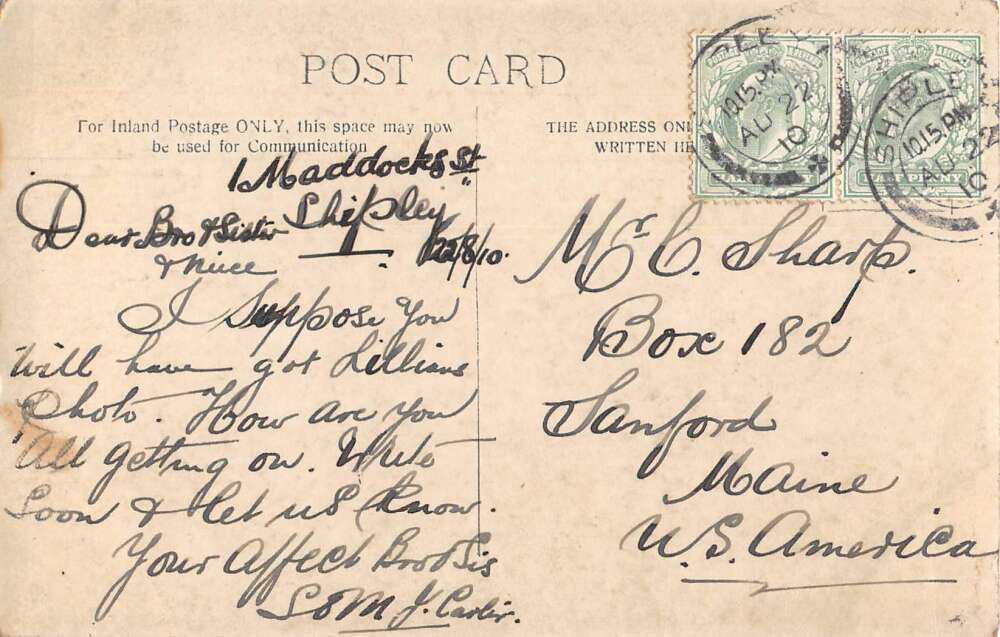 POST CARD
For Inland Postage ONLY, this space may now
be used for Communication
THE ADDRESS ONL
WRITTEN HE
SHIPLEY
10.15.PM
AU 22
10
SHIPLEY
10.15.PM
AU 22
10
HALFPENNY
1 Maddocks St
Shipley
22/8/10.
Dear Bro & Sister
& niece
I Suppose You
Will have got Lillians
Photo. How are you
All getting on. Write
Soon & let us know.
Your Affect Bro & Sis
S & M J.
Mr C. Sharp.
Box 182
Sanford
Maine
U.S. America